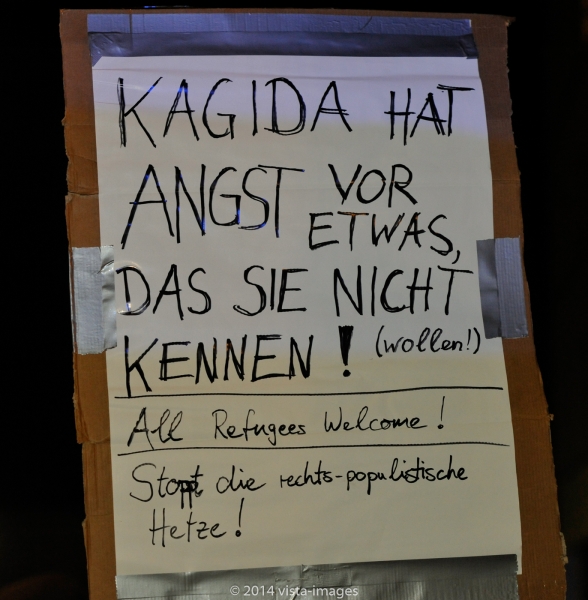 KAGIDA HAT
ANGST VOR
ETWAS,
DAS SIE NICHT
KENNEN! (wollen!)
All Refugees Welcome!
Stoppt die rechts-populistische
Hetze!
© 2014 vista-images